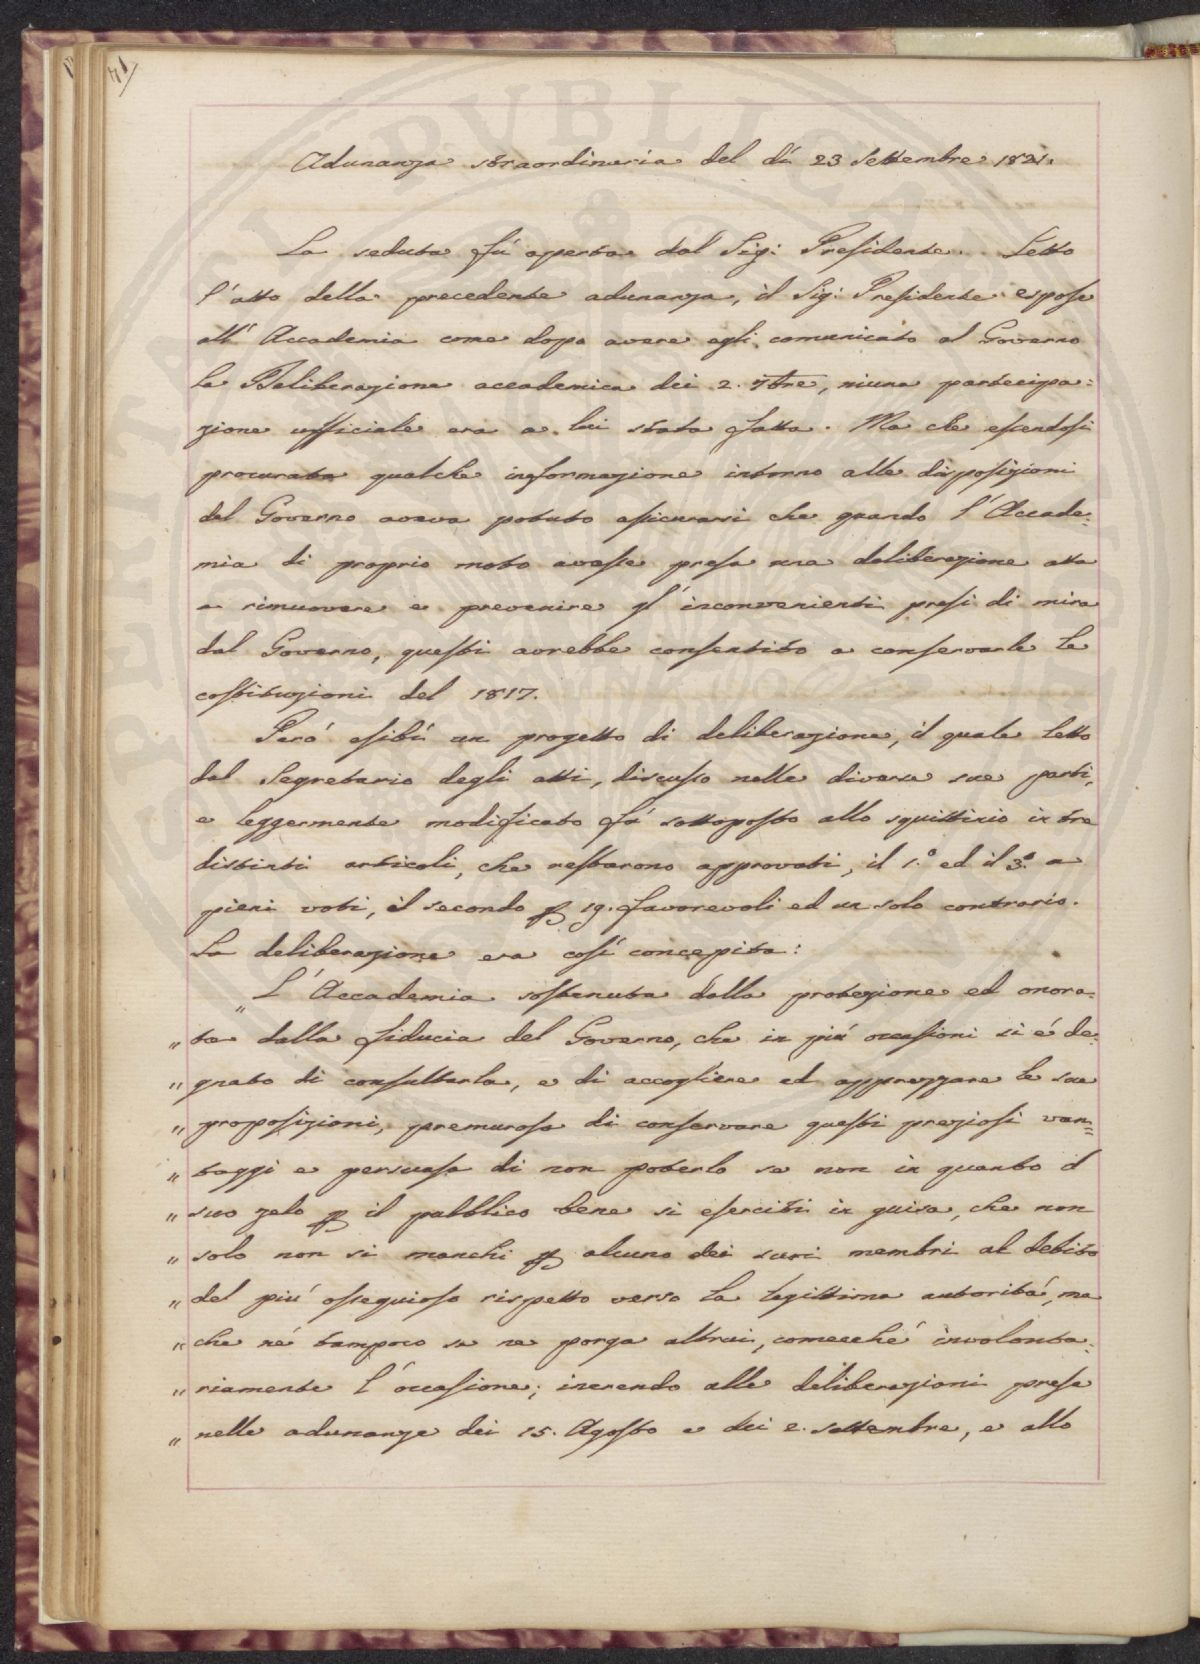 71
Adunanza straordinaria del dì 23 Settembre 1821.
La seduta fù aperta dal Sig: Presidente. Letto
l'atto della precedente adunanza, il Sig: Presidente espose
all' Accademia come dopo avere egli comunicato al Governo
la Deliberazione accademica dei 2. 7bre, niuna partecipa=
zione ufficiale era a lui stata fatta. Ma che essendosi
procurata qualche informazione intorno alle disposizioni
del Governo aveva potuto assicurarsi che quando l'Accade=
mia di proprio moto avesse presa una deliberazione atta
a rimuovere e prevenire gl' inconvenienti presi di mira
dal Governo, questi avrebbe consentito a conservarle le
costituzioni del 1817.
Però esibì un progetto di deliberazione, il quale letto
dal Segretario degli atti, discusso nelle diverse sue parti,
e leggermente modificato fù sottoposto allo squittinio in tre
distinti articoli, che restarono approvati, il 1.º ed il 3.º a
pieni voti, il secondo p 19. favorevoli ed un solo contrario.
La deliberazione era così concepita:
" L' Accademia sostenuta dalla protezione ed onora=
" ta dalla fiducia del Governo, che in più occasioni si è de=
" gnato di consultarla, e di accogliere ed apprezzare le sue
" proposizioni, premurosa di conservare questi preziosi van=
" taggi e persuasa di non poterlo se non in quanto il
" suo zelo p il pubblico bene si eserciti in guisa, che non
" solo non si manchi p alcuno dei suoi membri al debito
" del più ossequioso rispetto verso la legittima autorità, ma
" che nè tampoco se ne porga altrui, comecchè involonta=
" riamente l'occasione; inerendo alle deliberazioni prese
" nelle adunanze dei 15. Agosto e dei 2. settembre, e allo